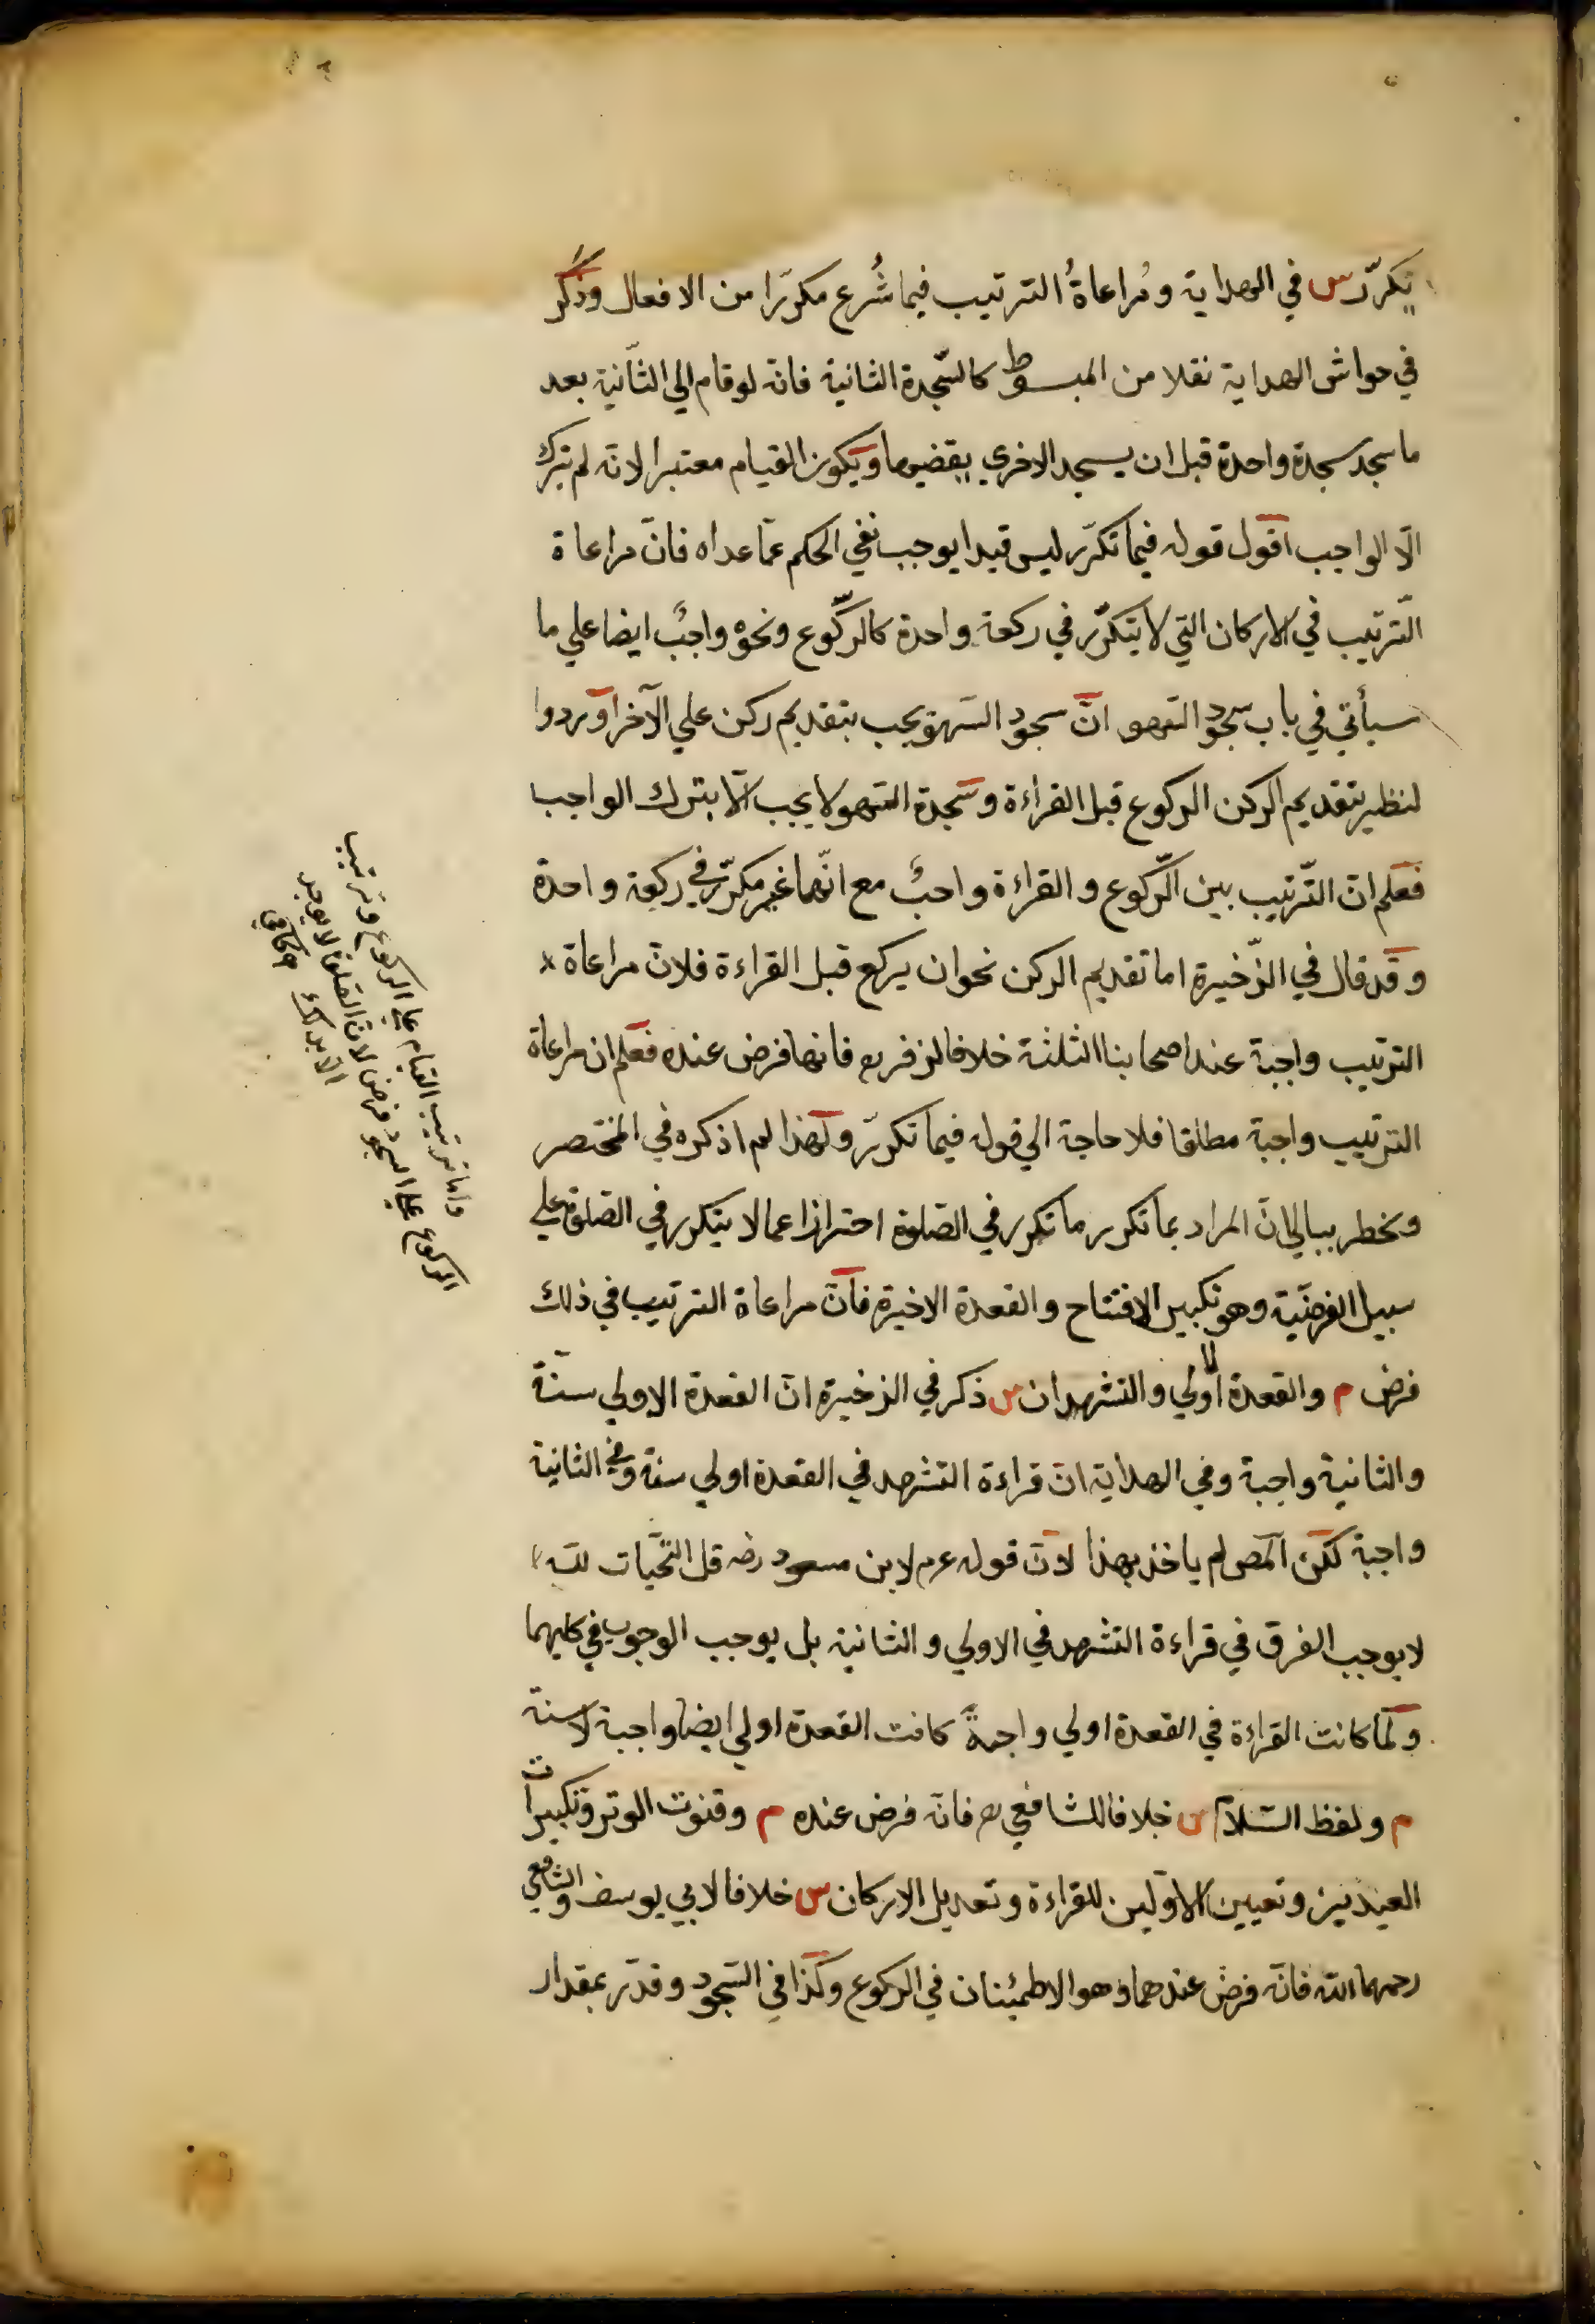 يتكرّر س في الهداية ومُراعاةُ الترتيب فيما شُرع مكرّرا من الافعال وذُكر
في حواشي الهداية نقلا من المبسوط كالسّجدة الثانية فانّه لو قام الي الثانية بعد
ما سجد سجدة واحدة قبل ان يسجد الاخري يقضيها ويكون القيام معتبرا لانّه لم يترك
الّا الواجب اقول قوله فيما تكرّر ليس قيدا يوجب نفي الحكم عمّا عداه فانّ مراعاة
التّرتيب في الاركان التي لا يتكرّر في ركعة واحدة كالرّكوع ونحوه واجبٌ ايضا علي ما
سيأتي في باب سجود السّهو انّ سجود السّهو يجب بتقديم ركن علي الآخر اوردوا
لنظير تقديم الركن الركوع قبل القراءة وسجدة السّهو لا يجب الّا بترك الواجب
فعلم انّ التّرتيب بين الرّكوع والقراءة واجبٌ مع انّهما غير مكرّر في ركعة واحدة
وقد قال في الذّخيرة اما تقديم الركن نحو ان يركع قبل القراءة فلانّ مراعاة
الترتيب واجبة عند اصحابنا الثلثة خلافا لزفر رح فانها فرض عنده فعلم ان مراعاة
الترتيب واجبة مطلقا فلا حاجة الي قوله فيما تكرّر ولهذا لم اذكره في المختصر
ويخطر ببالي انّ المراد بما تكرر ما تكرر في الصّلوة احترازا عما لا يتكرر في الصّلوة علي
سبيل الفرضيّة وهو تكبير الافتتاح والقعدة الاخيرة فانّ مراعاة الترتيب في ذلك
فرض م والقعدة الاولي والتشهدان س ذكر في الذخيرة انّ القعدة الاولي سنّة
والثانية واجبة وفي الهداية انّ قراءة التشهد في القعدة اولي سنة وفي الثانية
واجبة لكنّ المصـ لم ياخذ بهذا لانّ قوله عم لابن مسعود رضـ قل التّحيات للّه
لا يوجب الفرق في قراءة التشهد في الاولي والثانية بل يوجب الوجوب في كليهما
ولمّا كانت القراءة في القعدة اولي واجبةً كانت القعدة اولي ايضا واجبة لا سنة
م ولفظ السّلام س خلافا للشافعي رح فانّه فرض عنده م وقنوت الوتر وتكبيرات
العيدين وتعيين الاوّلين للقراءة وتعديل الاركان س خلافا لابي يوسف والشافعي
رحمهما اللّه فانّه فرض عندهما وهو الاطمئنان في الركوع وكذا في السّجود وقدّر بمقدار
واما ترتيب القيام علي الركوع وترتيب
الركوع علي السجود فرض لانّ الصّلوة لا يوجد
الّا بذلك